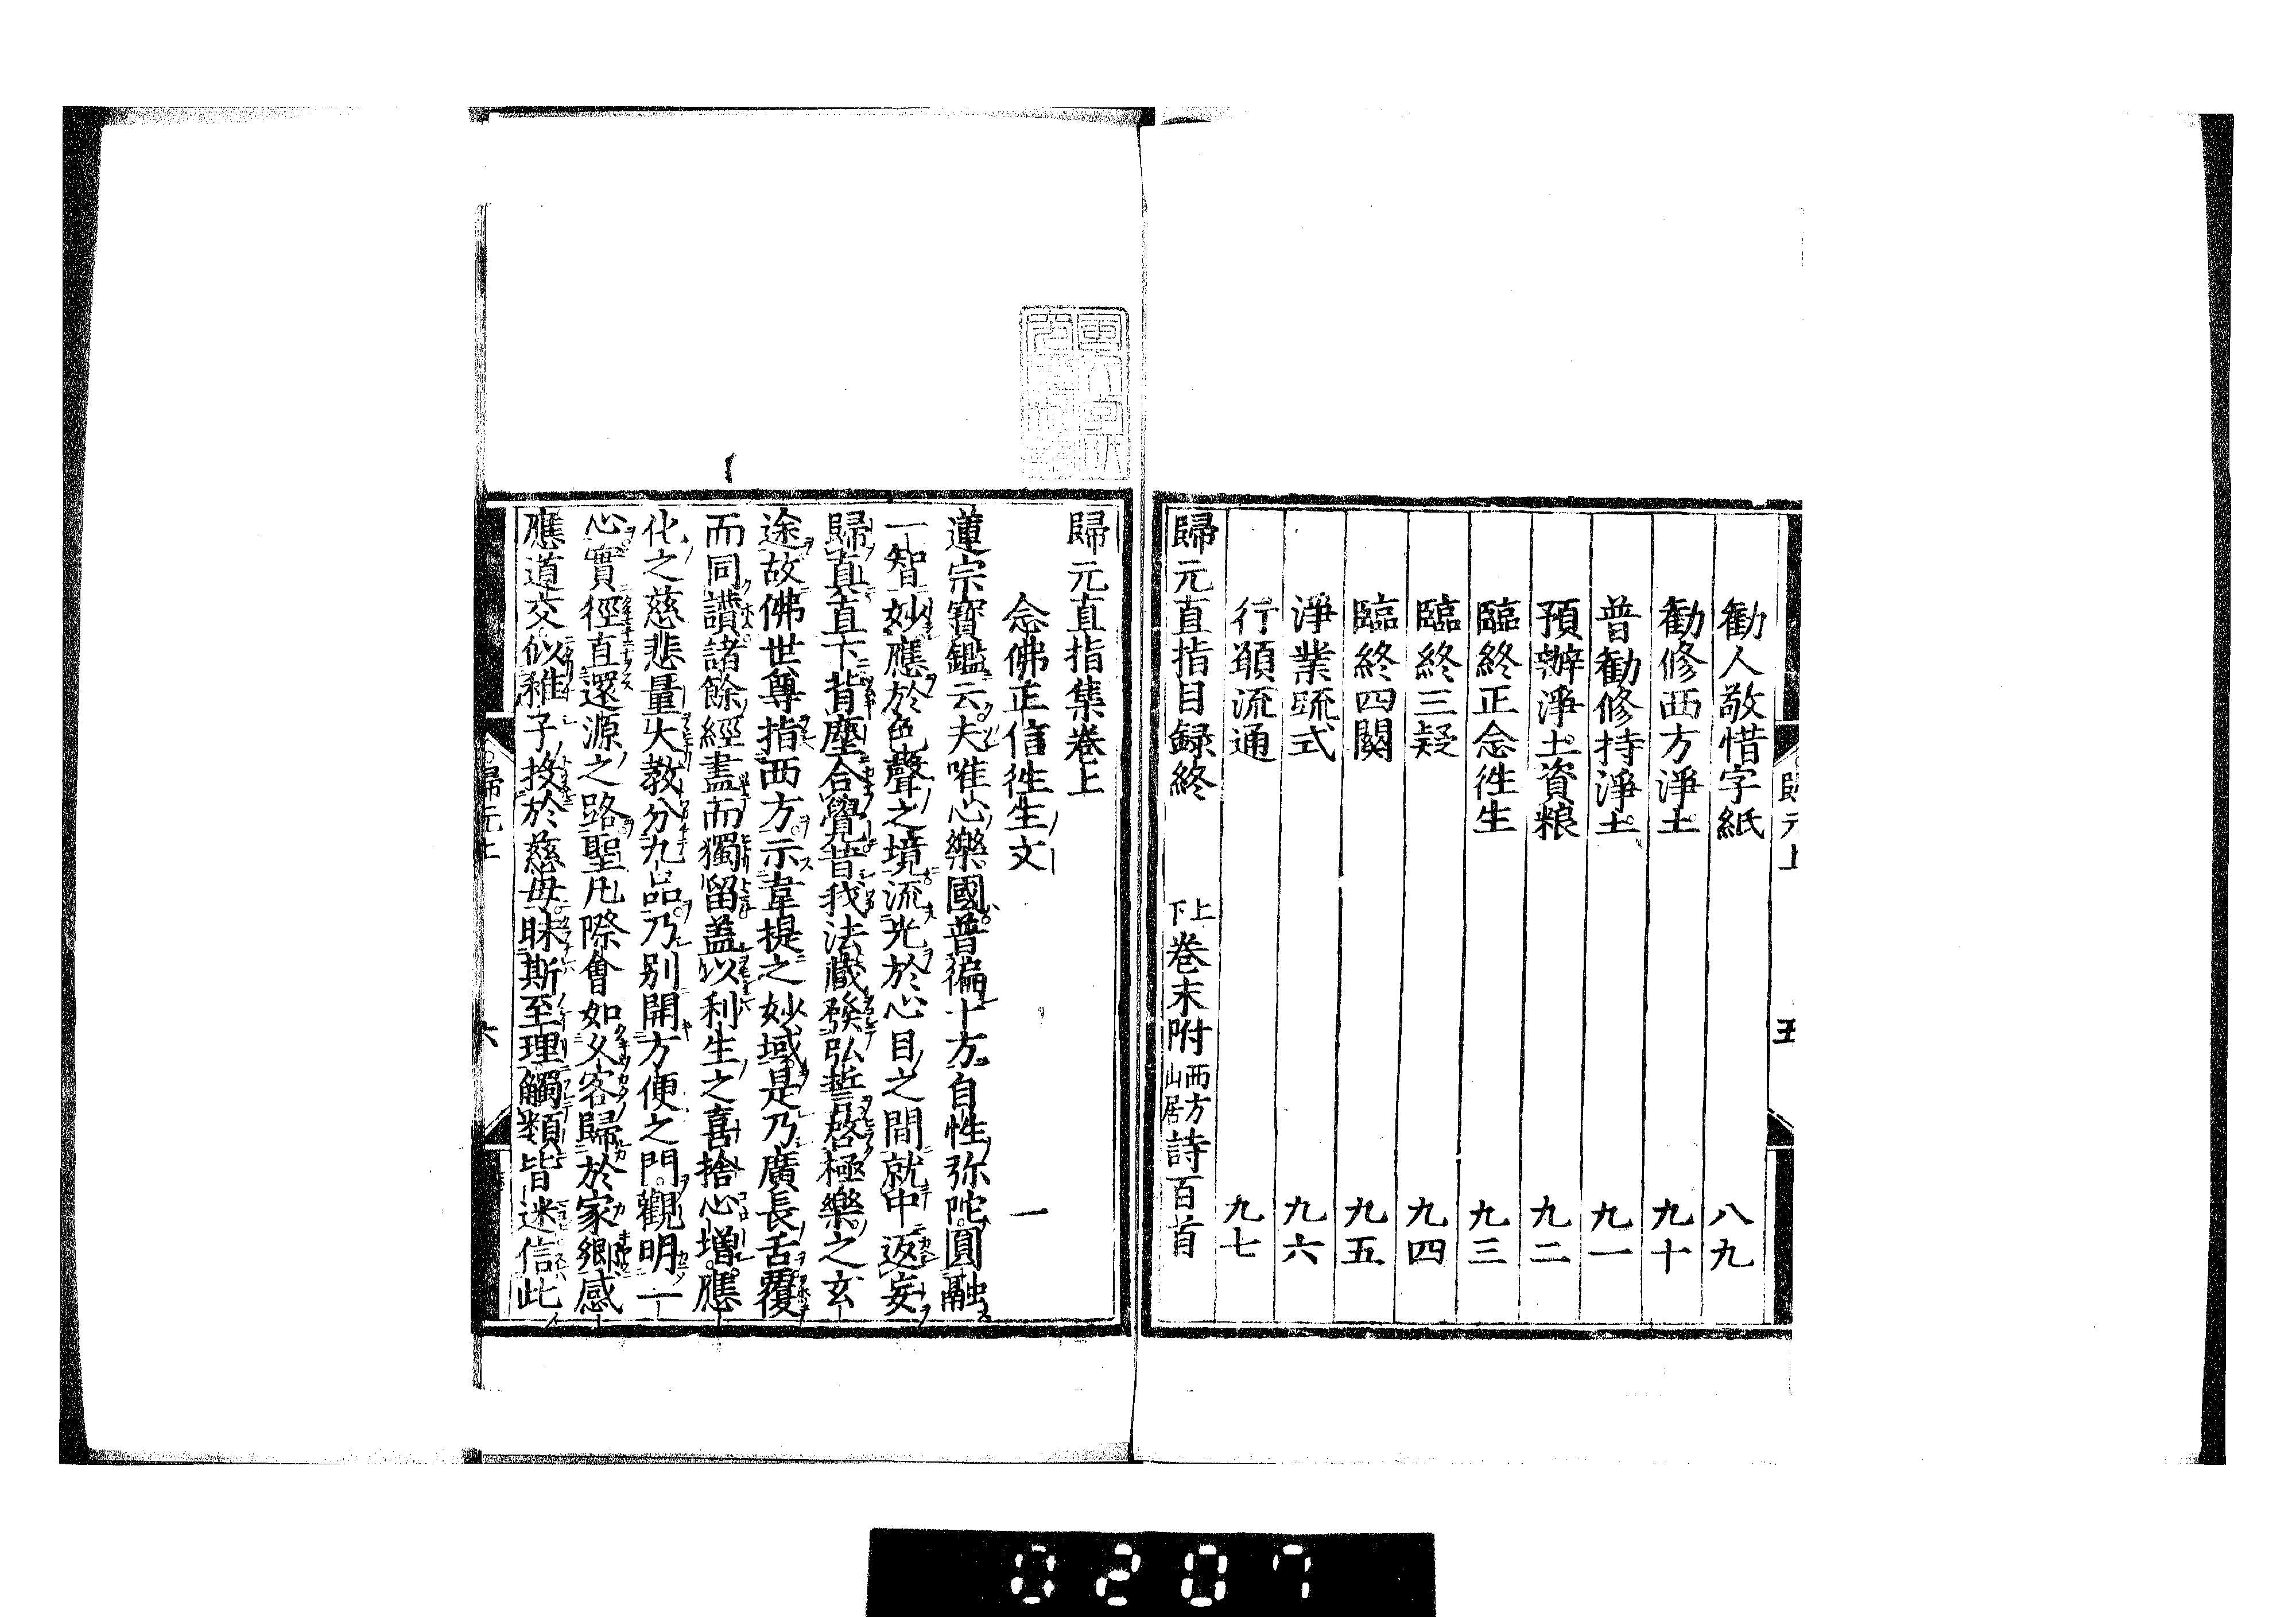 歸元上
五
勸人敬惜字紙 八九
勸修西方淨土 九十
普勸修持淨土 九一
預辦淨土資粮 九二
臨終正念徃生 九三
臨終三疑 九四
臨終四關 九五
淨業䟽式 九六
行願流通 九七
歸元直指目録終 上下卷末附西方山居詩百首
歸元直指集卷上
念佛正信徃生文 一
蓮宗寶鑑云夫唯心樂國普徧十方自性弥陀圓融
一智妙應於色聲之境流光於心目之間就中返妄
歸真直下背塵合覺昔我法藏發弘誓啓極樂之玄
途故佛世尊指西方示韋提之妙域是乃廣長舌覆
而同讚諸餘經盡而獨留盖以利生之喜捨心增應
化之慈悲量大教分九品乃别開方便之門觀明一
心實徑直還源之路聖凡際會如父客歸於家郷感
應道交似稚子投於慈母昧斯至理觸類皆迷信此
歸元上
六
0207